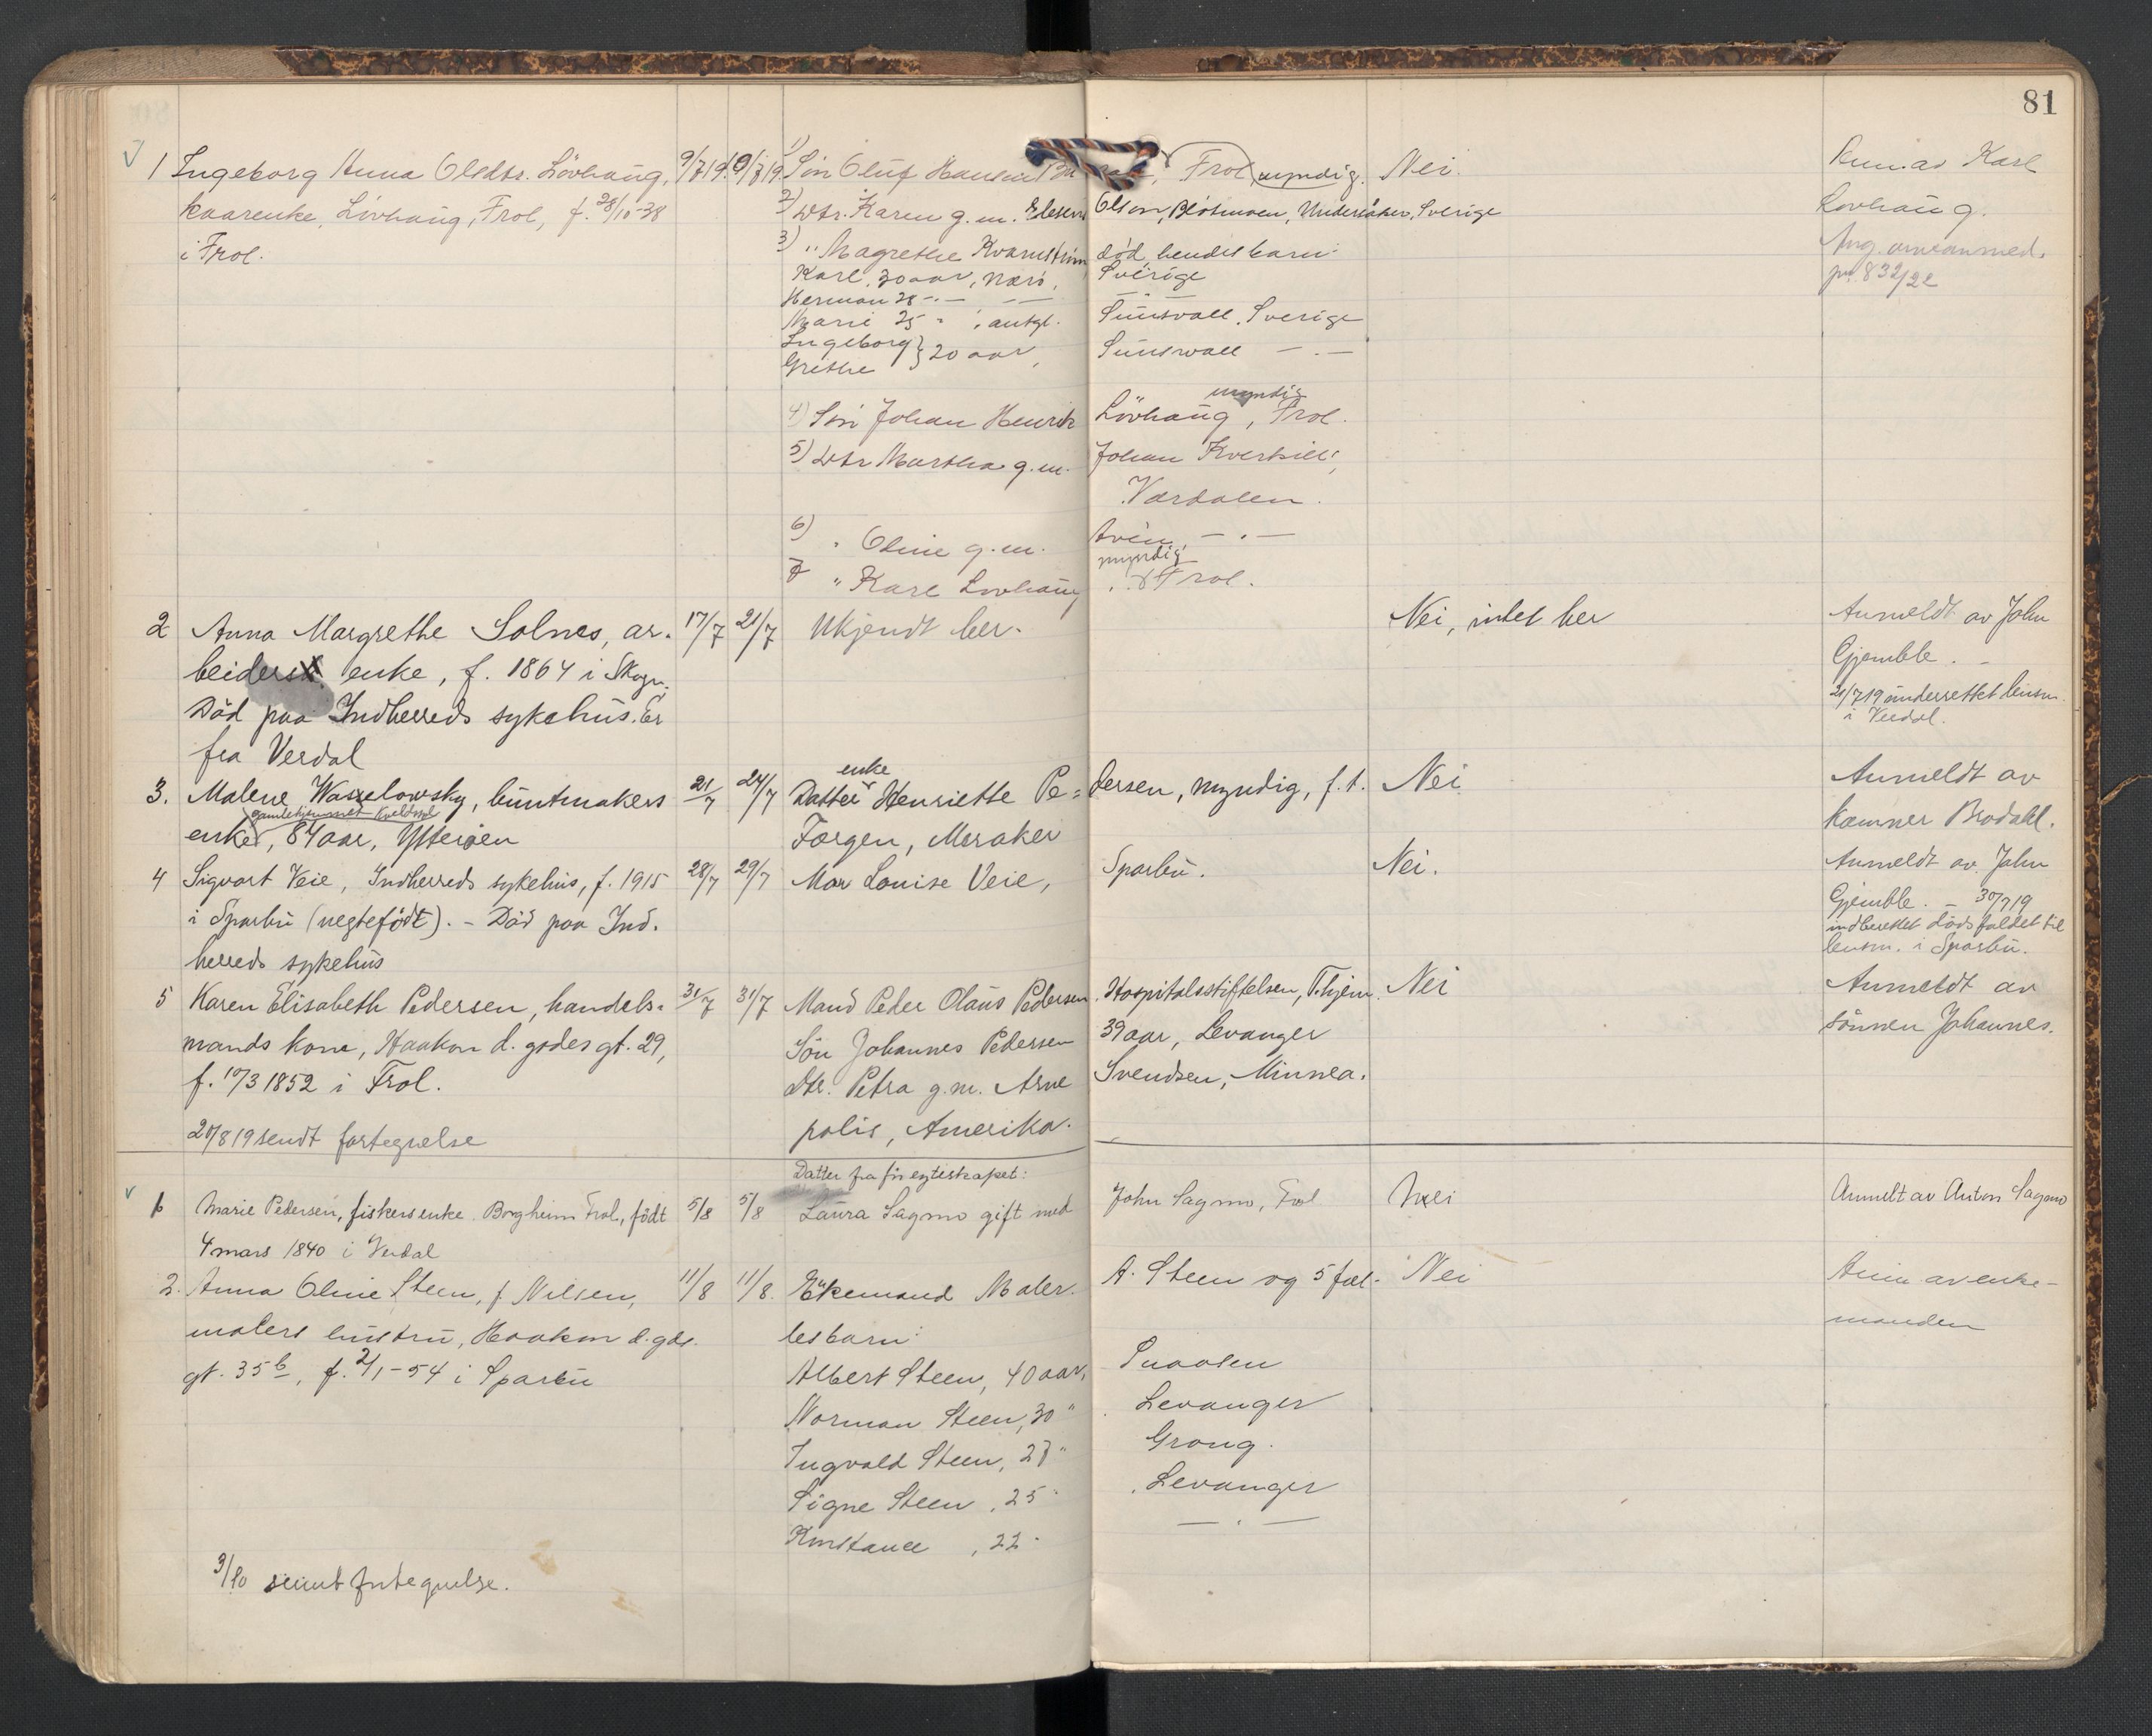 81
1 Ingeborg Anna Olsdtr. Lövhaug, 9/7 19. 9/7 19. 1) Søn Oluf Hansen Frol, myndig. Nei. Anm. av Karl
kaarenke, Lövhaug, Frol, f. 28/10-38 2) Dtr. Karen g. m. Olsen, Undersåker, Sverige Lovhaug.
i Frol. 3) " Magrethe Kvarnstrøm død, hendes barn:
Karl, 30 aar, Sverige
Herman 28 -"- — -"-
Marie 25 " , antgl. Sunsvall, Sverige
Ingeborg } 20 aar, Sunswall -"-
Grethe
myndig
4) Søn Johan Henrik Lövhaug, Frol.
5) Dtr Martha g. m. Johan
Værdalen.
6) " Oline g. m. -"-
myndig
7 " Karl Lovhaug, Frol.
2 Anna Margrethe Solnes, ar- 17/7 21/7 Ukjendt her. Nei, intet her Anmeldt av John
beiders enke, f. 1864 i Skogn. Gjemble. –
Död paa Indherreds sykehus. Er 21/7 19 underrettet lensm.
fra Verdal i Verdal.
3. Malene Waszelowsky, buntmakers 21/7 24/7 Datter enke Henriette Pe= dersen, myndig, f. t. Nei Anmeldt av
gamlehjemmet Kveldsol
enke, 84 aar, Ytterøen Færgen, Meraker kæmner Brodahl.
4 Sigvart Veie, Indherreds sykehus, f. 1915 28/7 29/7 Mor Louise Veie, Sparbu. Nei. Anmeldt av John
i Sparbu (uegtefödt). – Död paa Ind- Gjemble. – 30/7 19
herreds sykehus indberettet dödsfaldet til
lensm. i Sparbu.
5 Karen Elisabeth Pedersen, handels- 31/7 31/7 Mand Peder Olaus Pedersen, Hospitalsstiftelsen, T.hjem. Nei Anmeldt av
mands kone, Haakon d. godes gt. 29, Sön Johannes Pedersen 39 aar, Levanger sönnen Johannes.
f. 10/3 1852 i Frol. Dtr. Petra g. m. Arne Svendsen, Minnea-
polis, Amerika.
20/8 19 sendt fortegnelse
Datter fra før egteskapet:
1 Marie Pedersen, fiskers enke Borgheim Frol, født 5/8 5/8 Laura Sagmo gift med John Sagmo, Frol Nei Anmelt av Anton Sagmo
4 mars 1840 i Verdal
2. Anna Oline Steen, f. Nilsen, 11/8 11/8. Enkemand Maler. A. Steen og 5 fæl- Nei Anm. av enke-
malers hustru, Haakon d. gds. les barn: manden
gt. 35 b, f. 2/1-54 i Sparbu Albert Steen, 40 aar, Snaasen
Norman Steen, 30 " Levanger
Ingvald Steen, 27 " Grong.
Signe Steen, 25 " Levanger
Konstance, 22 " -"-
3/10 sendt fortegnelse.